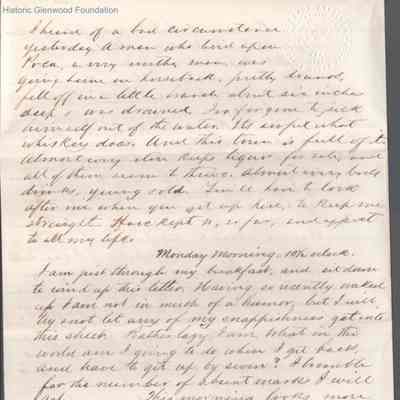 Historic Glenwood Foundation
I heard of a bad circumstance
yesterday. A man who lived upon
Poca, a very worthy man, was
going home on horseback, pretty drunk,
fell off in a little branch about six inches
deep & was drowned. Too far gone to pick
himself out of the water. It's awful what
whiskey does. And this town is full of it.
Almost every store keeps liquor for sale, and
all of them seem to thrive. Almost every body
drinks, young & old. You'll have to look
after me when you get up here, to keep me
straight. Have kept so, so far, and expect
to all my life.
Monday Morning. 10½ o'clock.
I am just through my breakfast, and sit down
to wind up this letter. Having so recently waked
up I am not in much of a humor, but I will
try & not let any of my snappishness get into
this sheet. Rather lazy I am. What in the
world am I going to do when I get back,
and have to get up by seven? I tremble
for the number of absent marks I will
get. This morning looks more